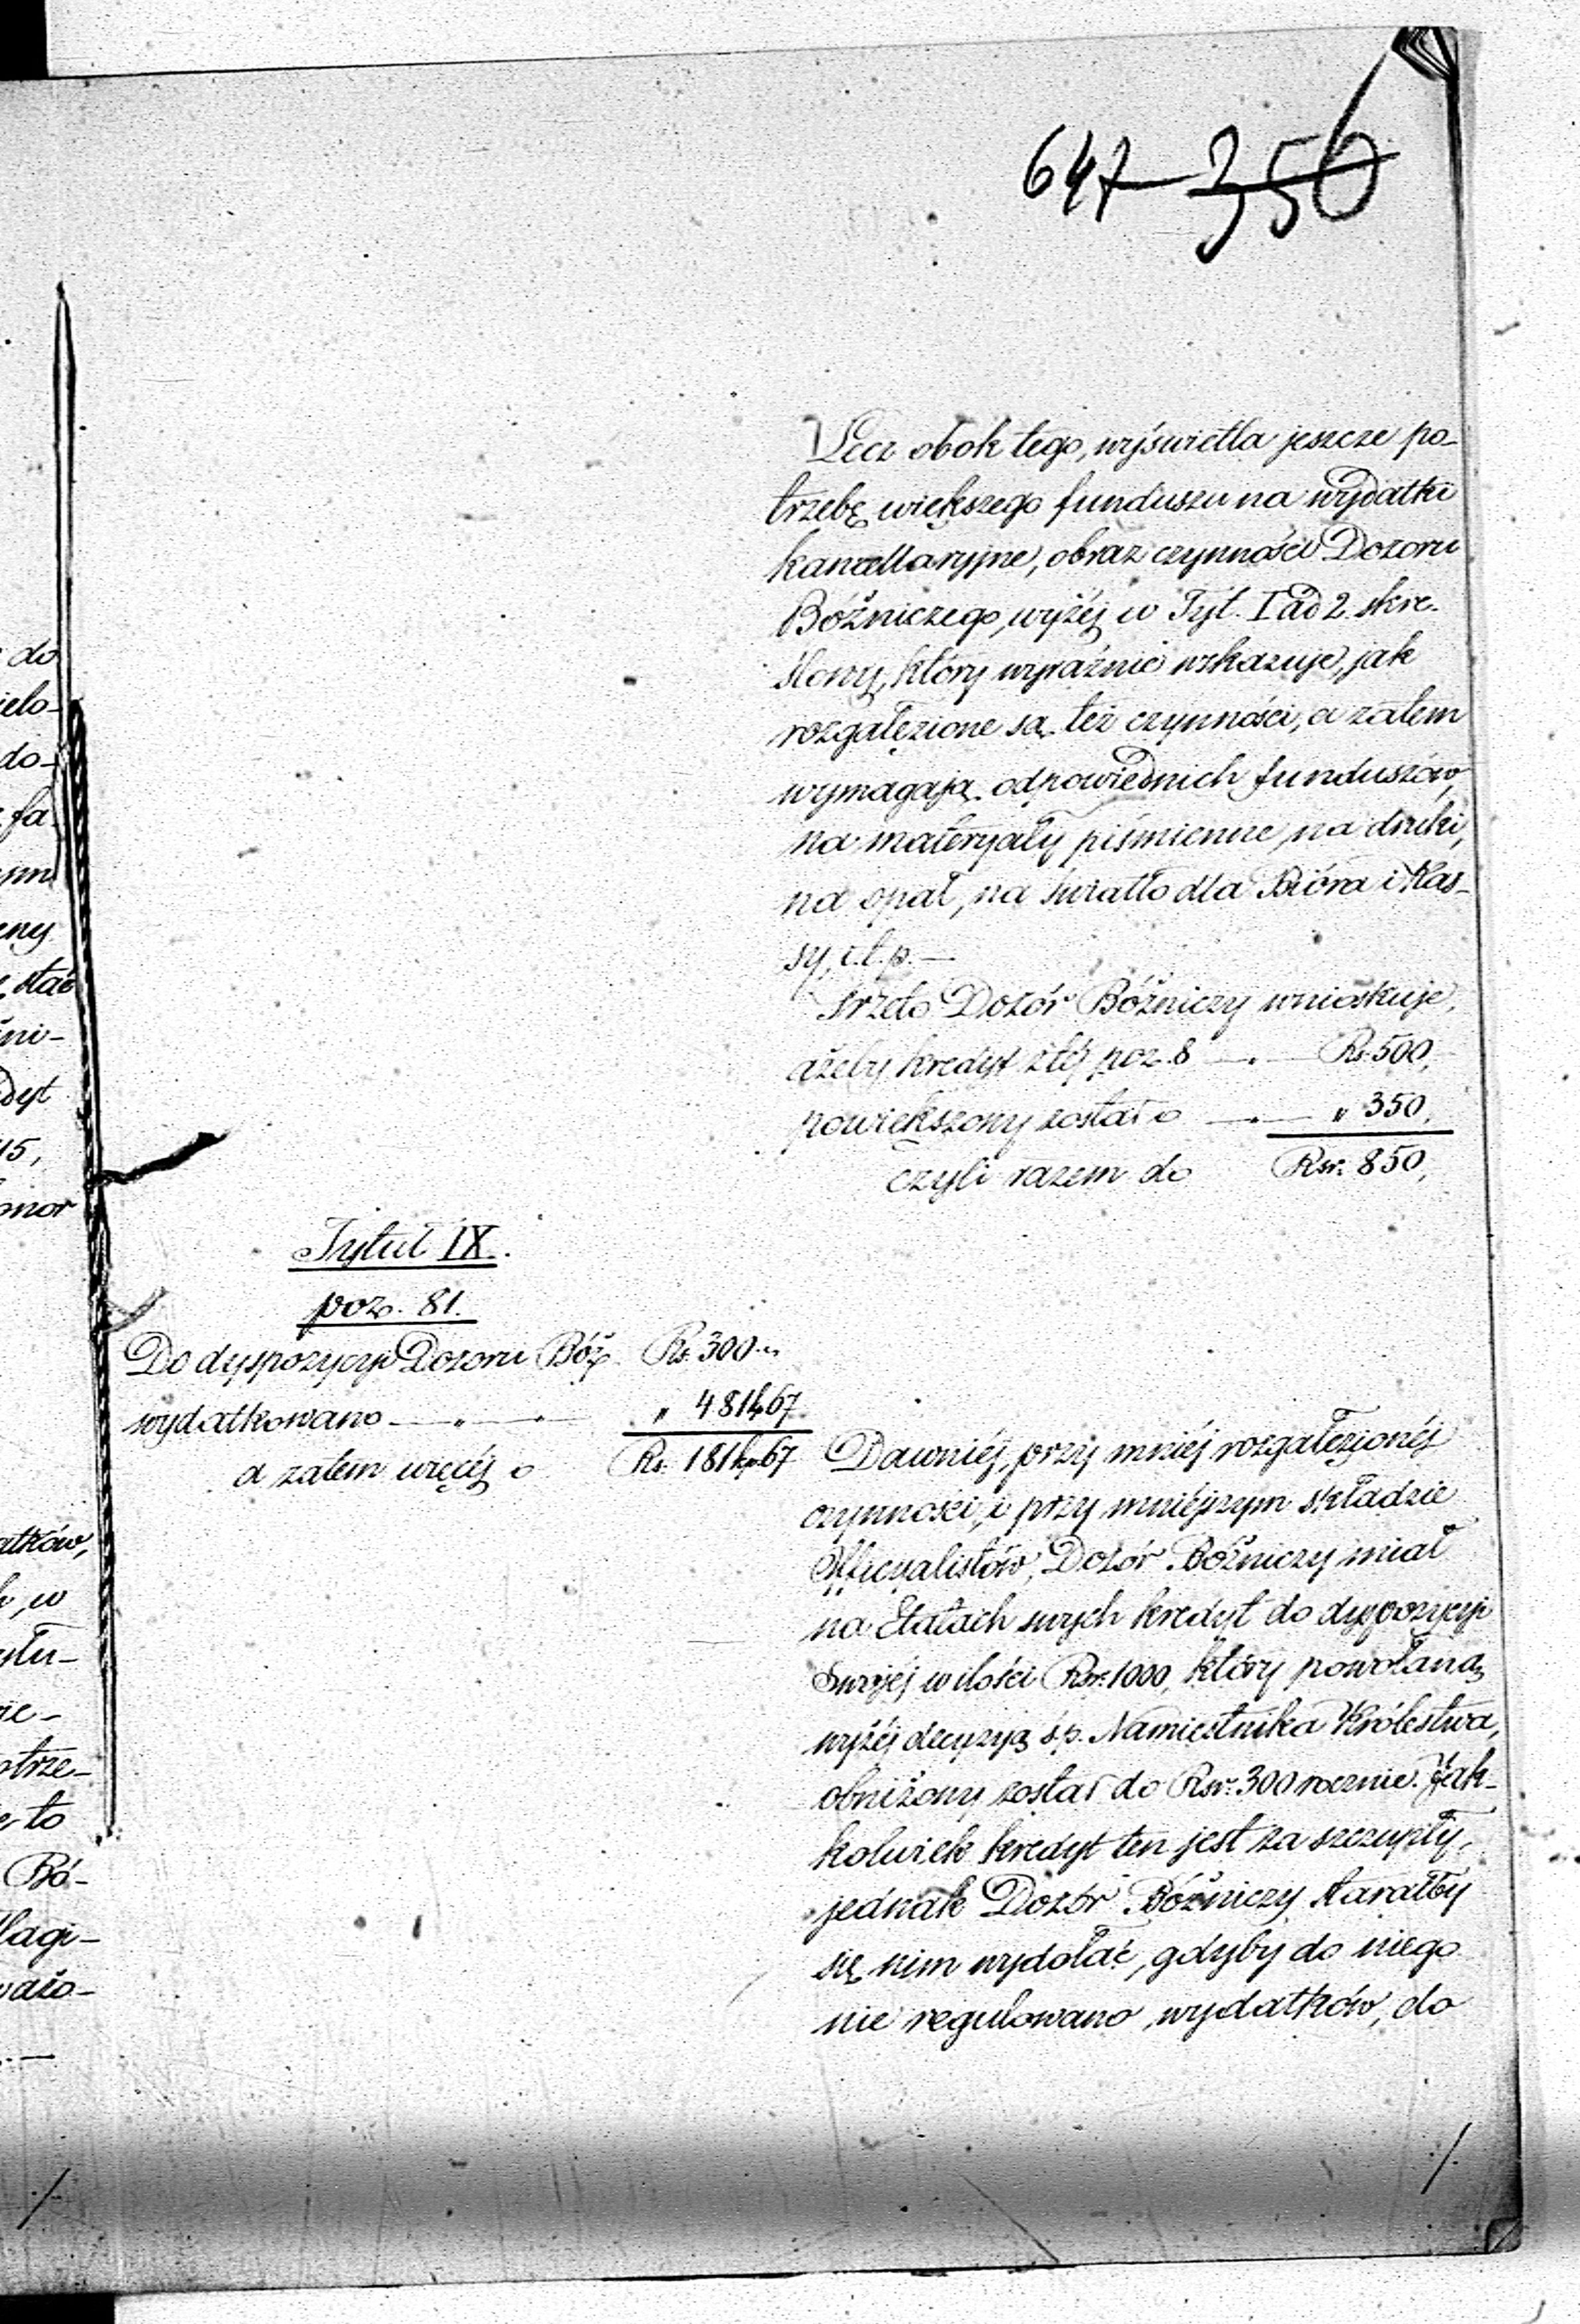 647 350
Lecz obok tego, wyświetla jeszcze po-
trzebę większego funduszu na wydatki
kancellaryjne, obraz czynności Dozoru
Bóżniczego, wyżéj w Tyt. I ad 2. skre-
ślony, który wyraźnie wskazuje, jak
rozgałęzione są też czynności, a zatem
wymagają odpowiednich funduszów,
na materyały piśmienne, na druki,
na opał, na światło dla Bióra i Kas-
sy, i.t.p. —
Przeto Dozór Bóżniczy wnioskuje,
ażeby kredyt z téj poz. 8 — „ — Rs. 500,
powiększony został o — „ — „ 350,
czyli razem do Rsr. 850,
Tytuł IX.
poz. 81.
Do dyspozycyi Dozoru Bóż. Rs. 300 „
wydatkowano — „ — „ — „ 481 k 67
a zatem więcéj o Rs. 181 kp 67
Dawniéj, przy mniéj rozgałęzionéj
czynności, i przy mniéjszym składzie
Officyalistów, Dozór Bóżniczy miał
na Etatach swych kredyt do dyspozycyi
swojéj w ilości Rsr. 1000, który powołaną
wyżéj decyzyą ś.p. Namiestnika Królestwa,
obniżony został do Rsr. 300 rocznie. Jak-
kolwiek kredyt ten jest za szczupły,
jednak Dozór Bóżniczy starałby
się nim wydołać, gdyby do niego
nie regulowano, wydatków, do
do
ielo-
do-
fa
ny
stać
ni-
dyt
15,
onor
atków,
, w
ytu-
ie-
otrze-
to
Bó-
lagi-
wało-